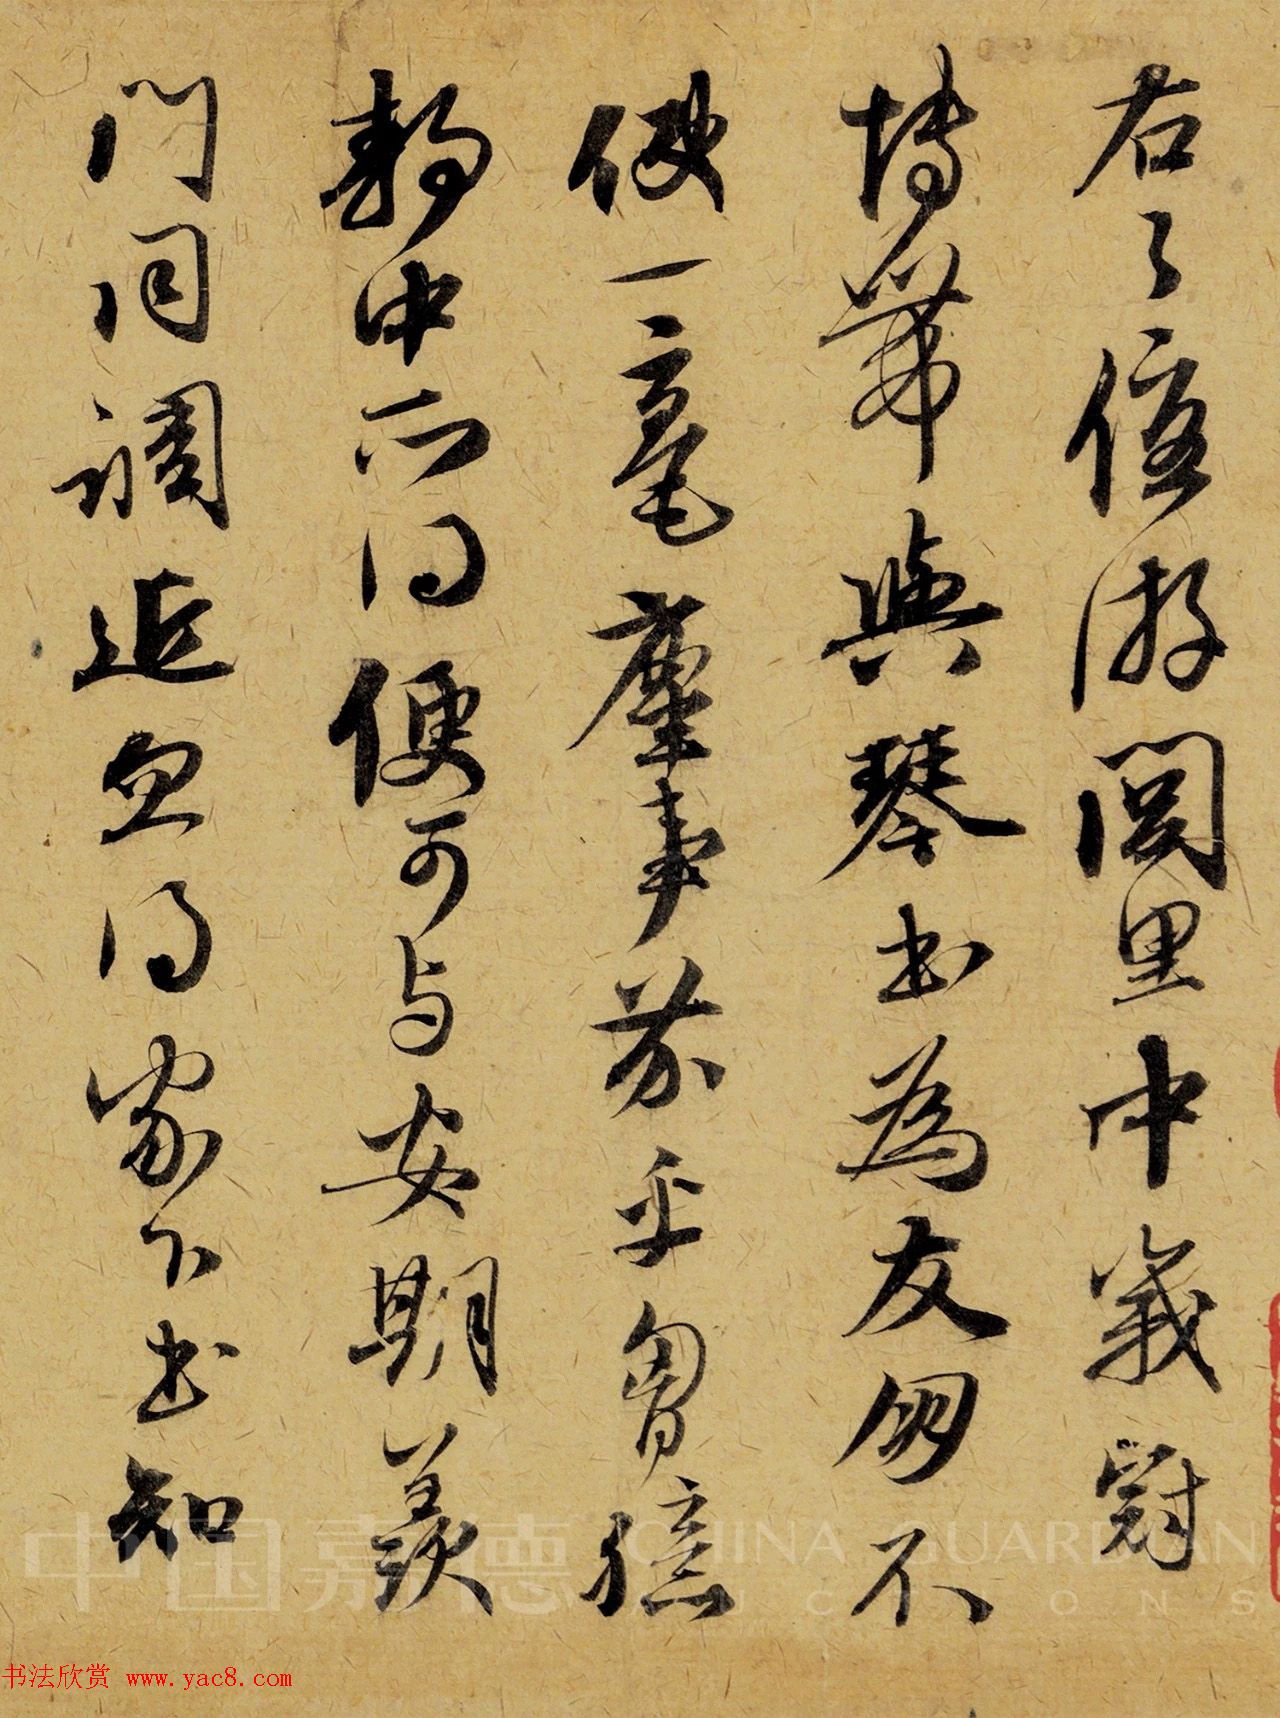 右之優游閭里中峩冠
博帶與琴書為友份不
使一毫塵事芥乎胷臆
静中所得便可与安期羨
門同調近忽得家下书知
中国嘉德
CHINA GUARDIAN
AUCTIONS
书法欣赏 www.yac8.com